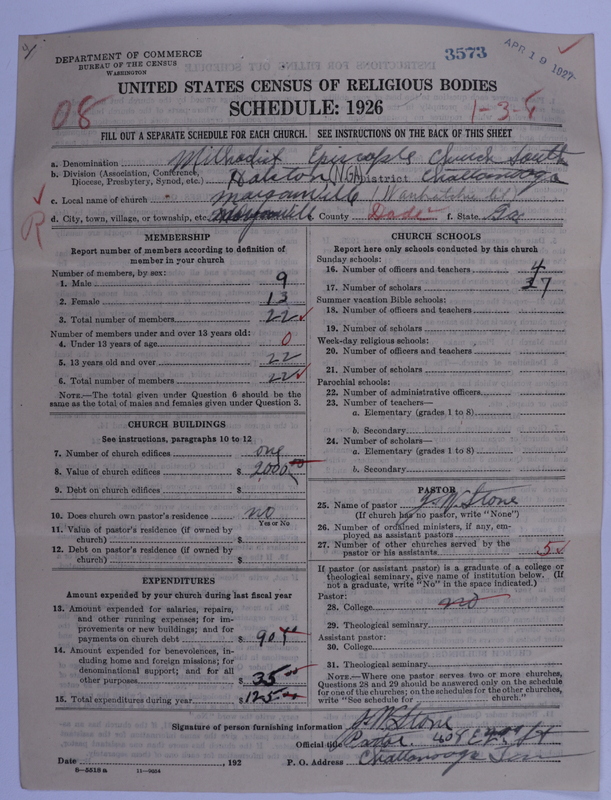 DEPARTMENT OF COMMERCE
BUREAU OF THE CENSUS
WASHINGTON
3573
APR 19 1927
UNITED STATES CENSUS OF RELIGIOUS BODIES
SCHEDULE: 1926
08
1-3-8
FILL OUT A SEPARATE SCHEDULE FOR EACH CHURCH. SEE INSTRUCTIONS ON THE BACK OF THIS SHEET
a. Denomination Methodist Episcople Church South
b. Division (Association, Conference, Diocese, Presbytery, Synod, etc.) Holston (NGA) District Chattanooga
c. Local name of church Morganville
d. City, town, village, or township, etc. Morganville County Dade f. State Ga
R
MEMBERSHIP
Report number of members according to definition of member in your church
Number of members, by sex:
1. Male 9
2. Female 13
3. Total number of members 22
Number of members under and over 13 years old:
4. Under 13 years of age 0
5. 13 years old and over 22
6. Total number of members 22
NOTE.—The total given under Question 6 should be the same as the total of males and females given under Question 3.
CHURCH BUILDINGS
See instructions, paragraphs 10 to 12
7. Number of church edifices one
8. Value of church edifices $ 2000 00
9. Debt on church edifices $
10. Does church own pastor's residence no
Yes or No
11. Value of pastor's residence (if owned by church) $
12. Debt on pastor's residence (if owned by church) $
EXPENDITURES
Amount expended by your church during last fiscal year
13. Amount expended for salaries, repairs, and other running expenses; for improvements or new buildings; and for payments on church debt $ 90
14. Amount expended for benevolences, including home and foreign missions; for denominational support; and for all other purposes $ 35
15. Total expenditures during year $ 125
CHURCH SCHOOLS
Report here only schools conducted by this church
Sunday schools:
16. Number of officers and teachers 4
17. Number of scholars 37
Summer vacation Bible schools:
18. Number of officers and teachers
19. Number of scholars
Week-day religious schools:
20. Number of officers and teachers
21. Number of scholars
Parochial schools:
22. Number of administrative officers
23. Number of teachers—
a. Elementary (grades 1 to 8)
b. Secondary
24. Number of scholars—
a. Elementary (grades 1 to 8)
b. Secondary
PASTOR
25. Name of pastor J. W. Stone
(If church has no pastor, write "None")
26. Number of ordained ministers, if any, employed as assistant pastors
27. Number of other churches served by the pastor or his assistants 5
If pastor (or assistant pastor) is a graduate of a college or theological seminary, give name of institution below. (If not a graduate, write "No" in the space indicated.)
Pastor:
28. College no
29. Theological seminary
Assistant pastor:
30. College
31. Theological seminary
NOTE.—Where one pastor serves two or more churches, Questions 28 and 29 should be answered only on the schedule for one of the churches; on the schedules for the other churches, write "See schedule for church."
Signature of person furnishing information J. W. Stone
Official title Pastor.
Date , 192 P. O. Address Chattanooga Tenn
8-5518a 11-9024